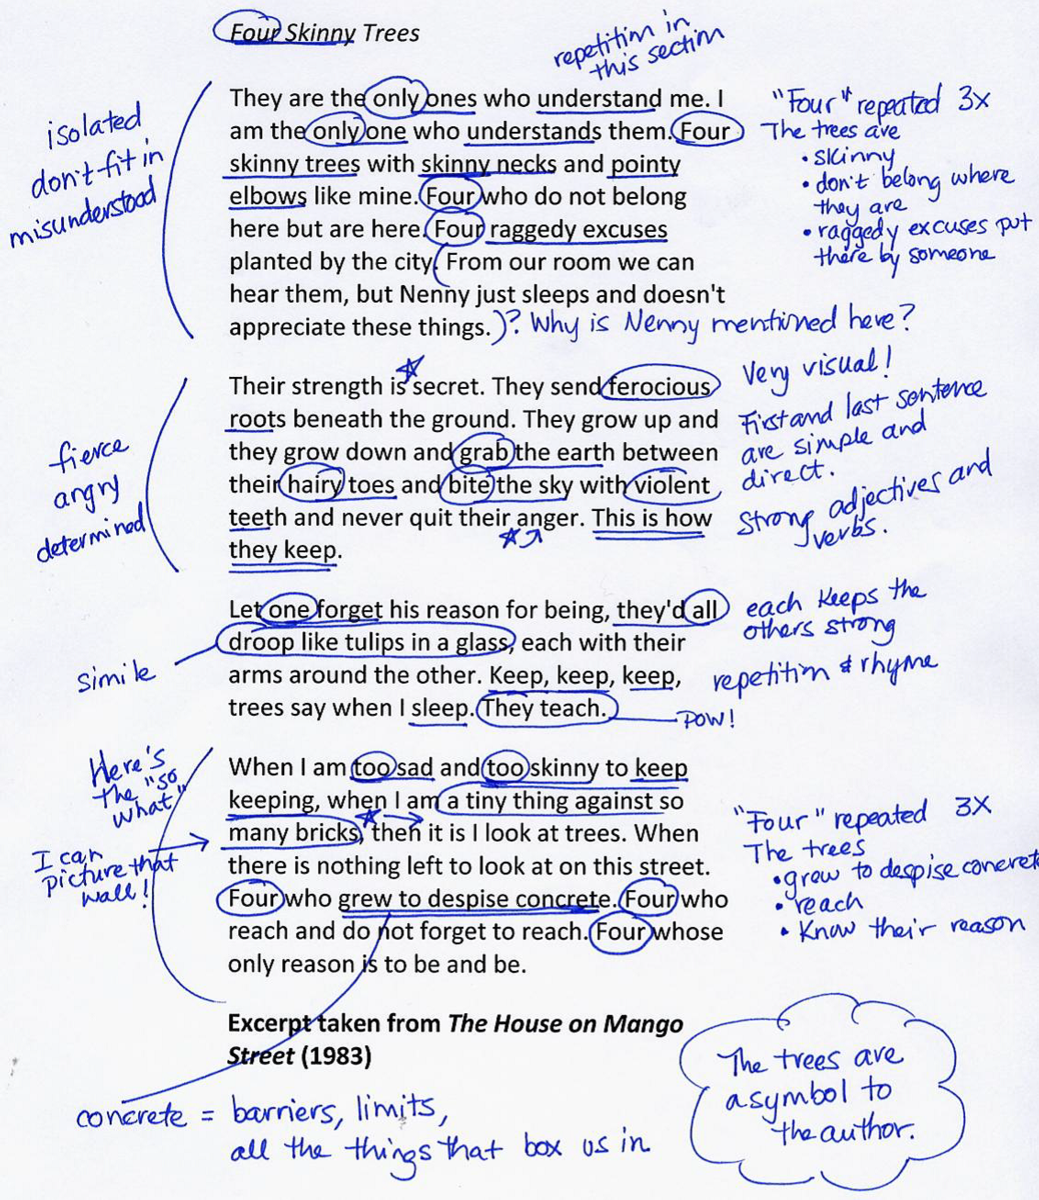 Four Skinny Trees
repetition in
this section
They are the only ones who understand me. I
am the only one who understands them. Four
skinny trees with skinny necks and pointy
elbows like mine. Four who do not belong
here but are here. Four raggedy excuses
planted by the city. From our room we can
hear them, but Nenny just sleeps and doesn't
appreciate these things.)? Why is Nenny mentioned here?
isolated
don't fit in
misunderstood
"Four" repeated 3x
The trees are
• skinny
• don't belong where
they are
• raggedy excuses put
there by someone
Their strength is secret. They send ferocious
roots beneath the ground. They grow up and
they grow down and grab the earth between
their hairy toes and bite the sky with violent
teeth and never quit their anger. This is how
they keep.
fierce
angry
determined
Very visual!
First and last sentence
are simple and
direct.
Strong adjectives and
verbs.
Let one forget his reason for being, they'd all
droop like tulips in a glass, each with their
arms around the other. Keep, keep, keep,
trees say when I sleep. They teach.
simile
each keeps the
others strong
repetition & rhyme
POW!
When I am too sad and too skinny to keep
keeping, when I am a tiny thing against so
many bricks, then it is I look at trees. When
there is nothing left to look at on this street.
Four who grew to despise concrete. Four who
reach and do not forget to reach. Four whose
only reason is to be and be.
Here's
the "so
what"
I can
picture that
wall!
"Four" repeated 3X
The trees
• grew to despise concrete
• reach
• Know their reason
Excerpt taken from The House on Mango
Street (1983)
concrete = barriers, limits,
all the things that box us in
The trees are
a symbol to
the author.